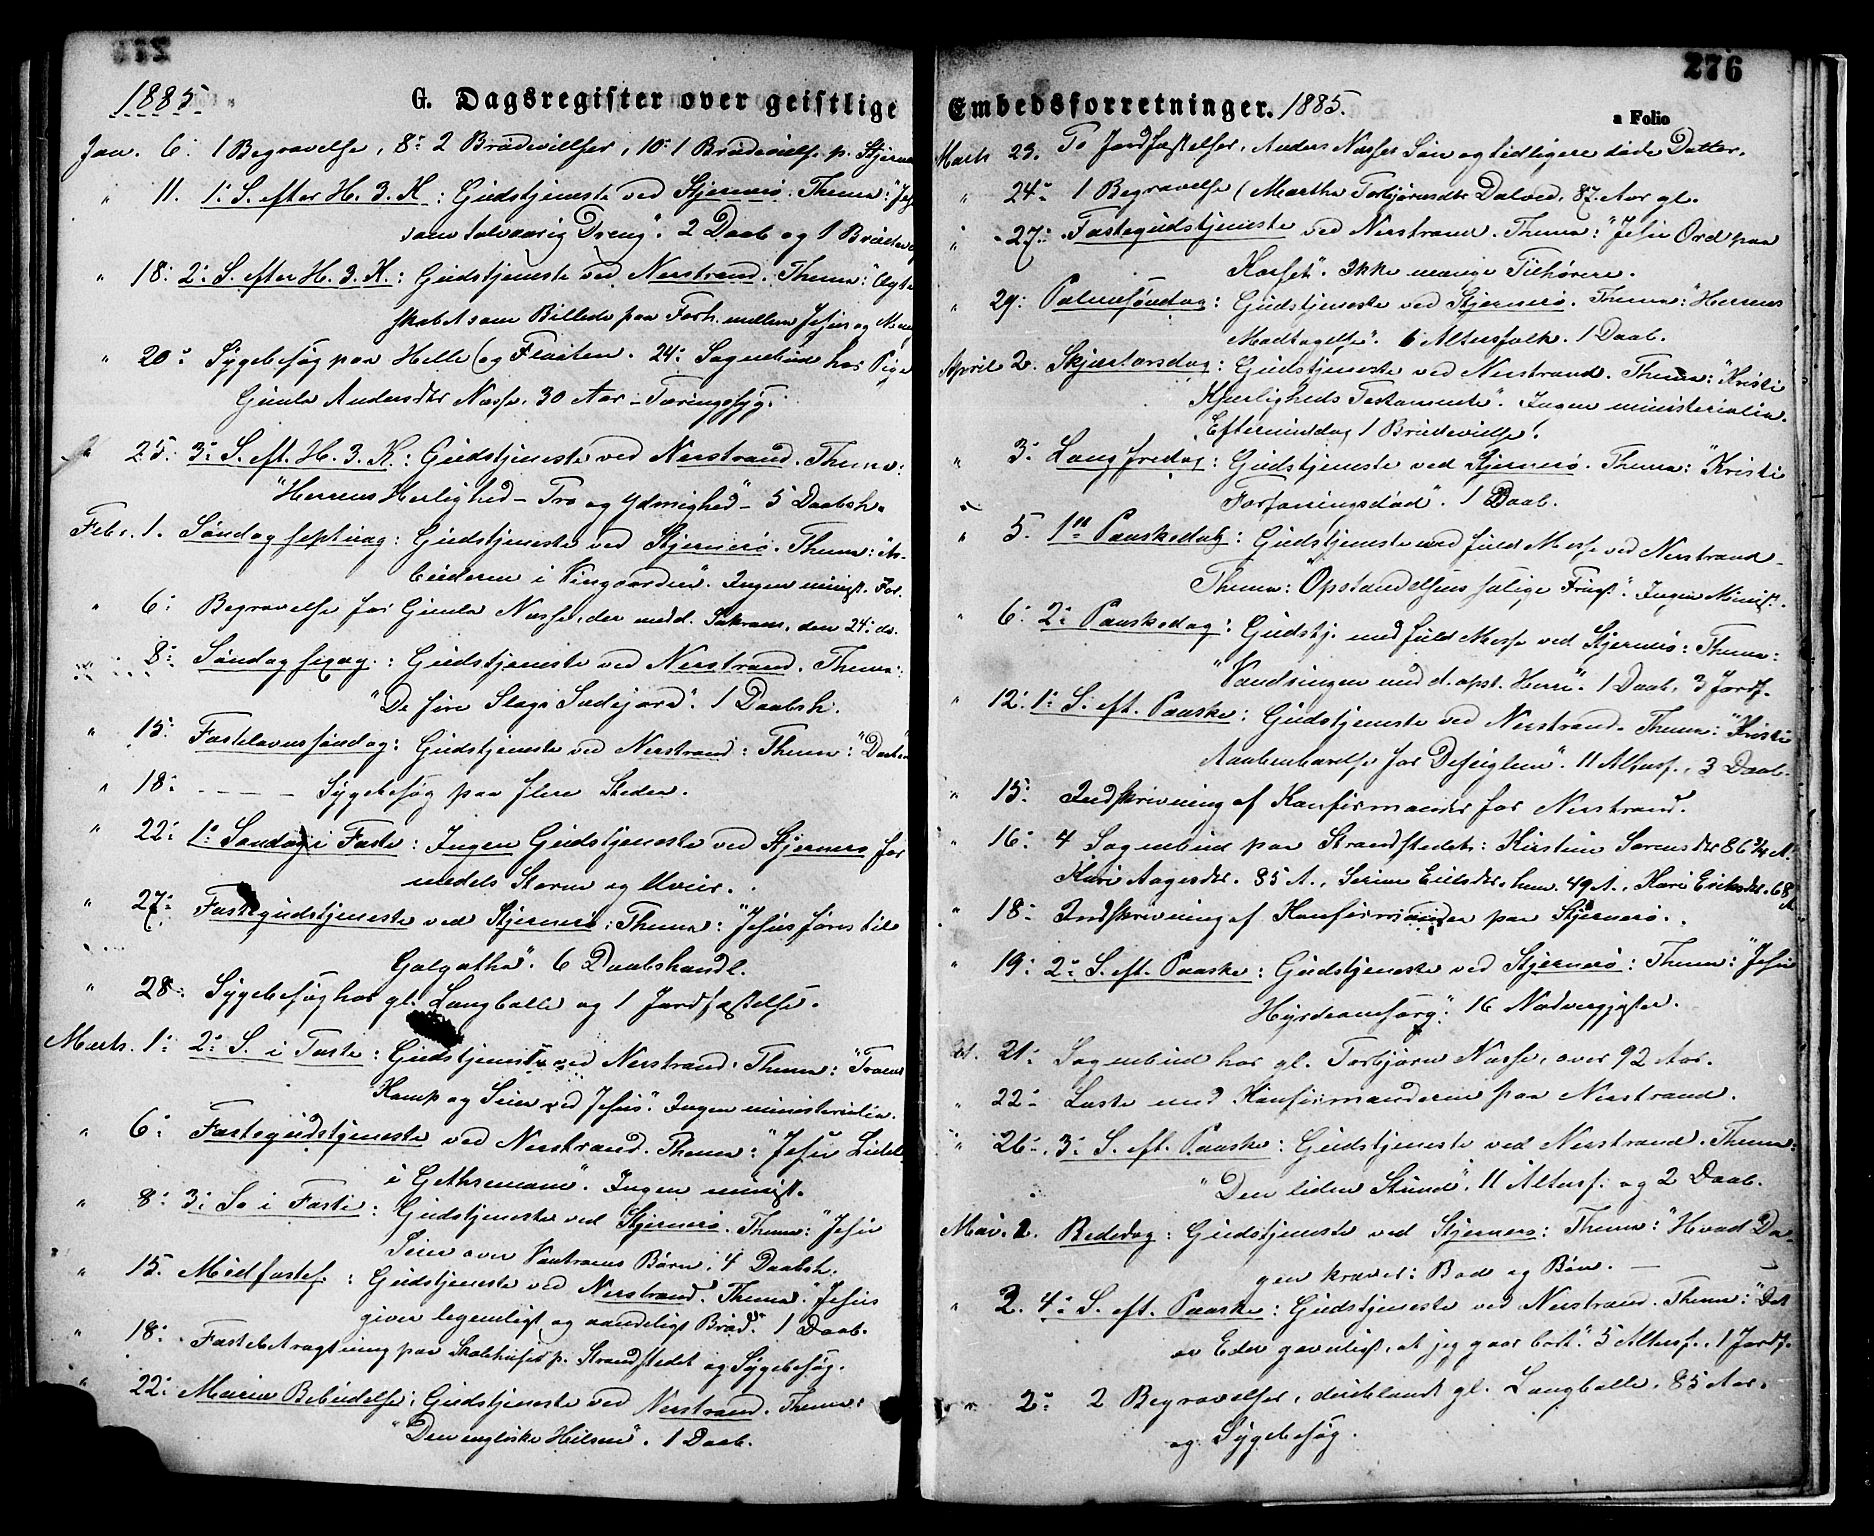 1885
G. Dagsregister over geistlige
Jan. 6: 1 Begravelse, 8: 2 Brudevielser, 10: 1 Brudevielse p. Stjernerø
" 11. 1: S. efter H. 3. K.: Gudstjeneste ved Stjernerø. Thema: "Jesus
som tolvaarig Dreng". 2 Daab og 1 Brudev.
" 18: 2: S. efter H. 3. K.: Gudstjeneste ved Nerstrand. Thema: "Ægte
skabet som Billede paa Forh. mellem Jesus og
" 20: Sygebesøg paa Helle og Flaaten. 24: Sognebud hos Pige
Gunla Andersdtr Næsse, 30 Aar - Tæringssyg.
" 25: 3: S. eft. H. 3. K.: Gudstjeneste ved Nerstrand. Thema:
"Herrens Herlighed - Tro og Ydmighed" - 5 Daabsh.
Febr. 1. Søndag septuag: Gudstjeneste ved Stjernerø. Thema: "Ar-
beiderne i Vingaarden". Ingen minist. For.
" 6: Begravelse for Gunla Næsse, der modt. Sakram. den 24: ds.
" 8: Søndag sexag.: Gudstjeneste ved Nerstrand. Thema:
"De fire Slags Sædejord". 1 Daabsh.
" 15: Fastelavnssøndag: Gudstjeneste ved Nerstrand: Thema: "Daaben"
" 18: - - - - Sygebesøg paa flere Steder.
" 22: 1: Søndag i Faste: Ingen Gudstjeneste ved Stjernerø for
medels Storm og Uveir.
" 27: Fastegudstjeneste ved Stjernerø: Thema: "Jesus føres til
Golgatha". 6 Daabshandl.
" 28: Sygebesøg hos gl. Langballe og 1 Jordfæstelse.
Marts. 1: 2: S. i Faste: Gudstjeneste ved Nerstrand: Thema: "Troens
Kamp og Seier ved Jesus". Ingen ministerialia.
" 6: Fastegudstjeneste ved Nerstrand. Thema: "Jesu Lidel.
i Gethsemane". Ingen minist.
" 8: 3: S. i Faste: Gudstjeneste ved Stjernerø. Thema: "Jesu
Seier over Vantroens Børn: 4 Daabsh.
" 15. Midfastes.: Gudstjeneste ved Nerstrand. Thema: "Jesus
giver legemligt og aandeligt Brød". 1 Daab.
" 18: Fastebetragtning paa Skolehuset p. Strandstedet og Sygebesøg.
" 22: Mariæ Bebudelse: Gudstjeneste ved Nerstrand. Thema:
"Den engleske Hilsen". 1 Daab.
276
Embedsforretninger. 1885.
a Folio
Marts 23. To Jordfæstelser, Anders Næsses Søn og tidligere døde Datter.
" 24: 1 Begravelse (Martha Torbjørnsdtr Dalved, 87 Aar gl.
" 27: Fastegudstjeneste ved Nerstrand. Thema: "Jesu Ord paa
Korset". Ikke mange Tilhørere.
" 29: Palmesøndag: Gudstjeneste ved Stjernerø. Thema: "Herrens
Modtagelse". 6 Altersfolk. 1 Daab.
April 2. Skjærtorsdag: Gudstjeneste ved Nerstrand. Thema: "Kristi
Kjærligheds Testamente". Ingen ministerialia.
Eftermiddag 1 Brudevielse!
" 3: Langfredag: Gudstjeneste ved Stjernerø. Thema: "Kristi
Forsoningsdød". 1 Daab.
" 5. 1ste Paaskedag: Gudstjeneste med fuld Messe ved Nerstrand -
Thema: "Opstandelsens salige Frugt". Ingen Minist.
" 6: 2: Paaskedag: Gudstj. med fuld Messe ved Stjernerø: Thema:
"Vandringen med d. opst. Herre". 1 Daab, 3 Jordf.
" 12: 1: S. eft. Paaske: Gudstjeneste ved Nerstrand. Thema: "Kristi
Aabenbarelse for Disciplene". 11 Altersf., 3 Daab.
" 15: Indskrivning af Konfirmander for Nerstrand.
" 16: 4 Sognebud paa Strandstedet: Kirstine Sørensdtr 86 3/4 A.
Kari Aagesdtr. 85 A., Serine Eilsdr. hm. 49 A., Kari Eriksdtr. 68 A
" 18: Indskrivning af Konfirmander paa Stjernerø.
" 19: 2: S. eft. Paaske: Gudstjeneste ved Stjernerø: Thema: "Jesu
Hyrdeomsorg": 16 Nadvergjæster.
21: Sognebud hos gl. Torbjørn Næsse, over 92 Aar.
" 22: Læste med Konfirmanderne paa Nerstrand.
" 26: 3: S. eft. Paaske: Gudstjeneste ved Nerstrand. Thema:
"Den liden Stund". 11 Altersf. og 2 Daab.
Mai. 1. Bededag: Gudstjeneste ved Stjernerø: Thema: "Hvad Da-
gen kræver: Bod og Bøn. -
" 3. 4: S. eft. Paaske: Gudstjeneste ved Nerstrand. Thema: "Det
er Eder gavnligt, at jeg gaar bort". 5 Altersf., 1 Jordf.
" 2: 2 Begravelser, deriblandt gl. Langballe, 85 Aar.
og Sygebesøg.